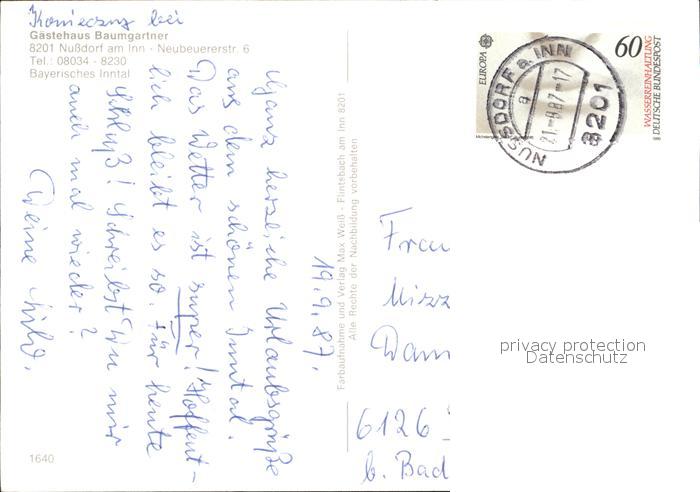 bei
Gästehaus Baumgartner
8201 Nußdorf am Inn - Neubeuererstr. 6
Tel.: 08034 - 8230
Bayerisches Inntal
19.9.87.
Ganz herzliche Urlaubsgrüße
aus dem schönen Inntal.
Das Wetter ist super! Hoffent-
lich bleibt es so. Für heute
Schluß! Schreibst Du mir
auch mal wieder?
Deine
1640
Farbaufnahme und Verlag Max Weiß - Flintsbach am Inn 8201
Alle Rechte der Nachbildung vorbehalten
EUROPA
60
WASSERREINHALTUNG
DEUTSCHE BUNDESPOST
NUSSDORF a. INN
a
21.-9.87-17
8201
Frau
Mizz
Dam
6126
b. Bad
privacy protection
Datenschutz